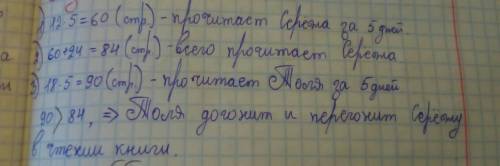 1) 12·5=60 (стр.) - прочитает Серёжа за 5 дней.
2) 60+24=84 (стр.) - всего прочитает Серёжа
3) 18·5=90 (стр.) - прочитает Толя за 5 дней
90 > 84, => Толя догонит и перегонит Серёжу
в чтении книги.